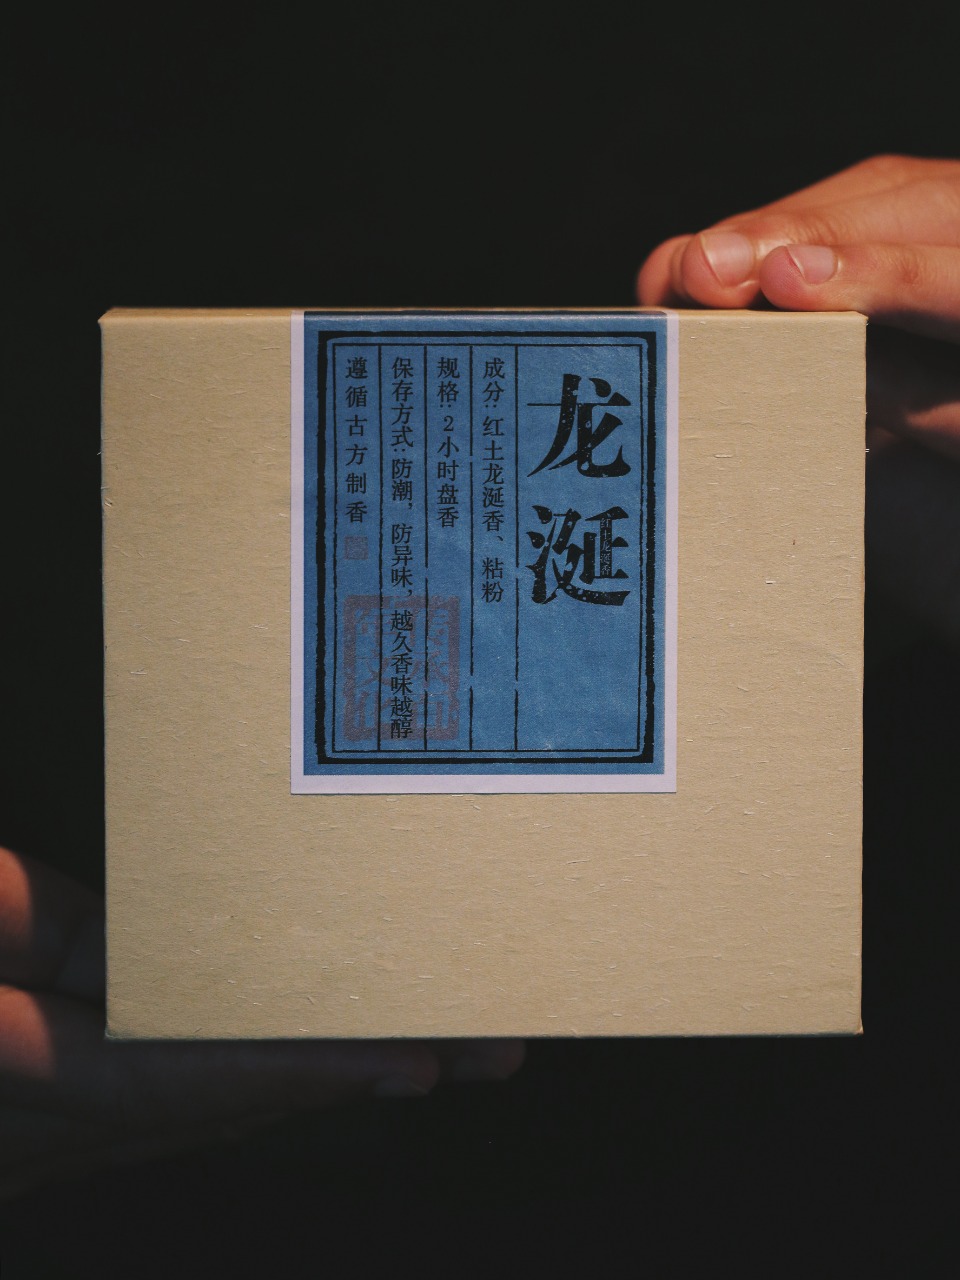 龙涎
红土龙涎香
成分:红土龙涎香、粘粉
规格:2小时盘香
保存方式:防潮，防异味，越久香味越醇
遵循古方制香